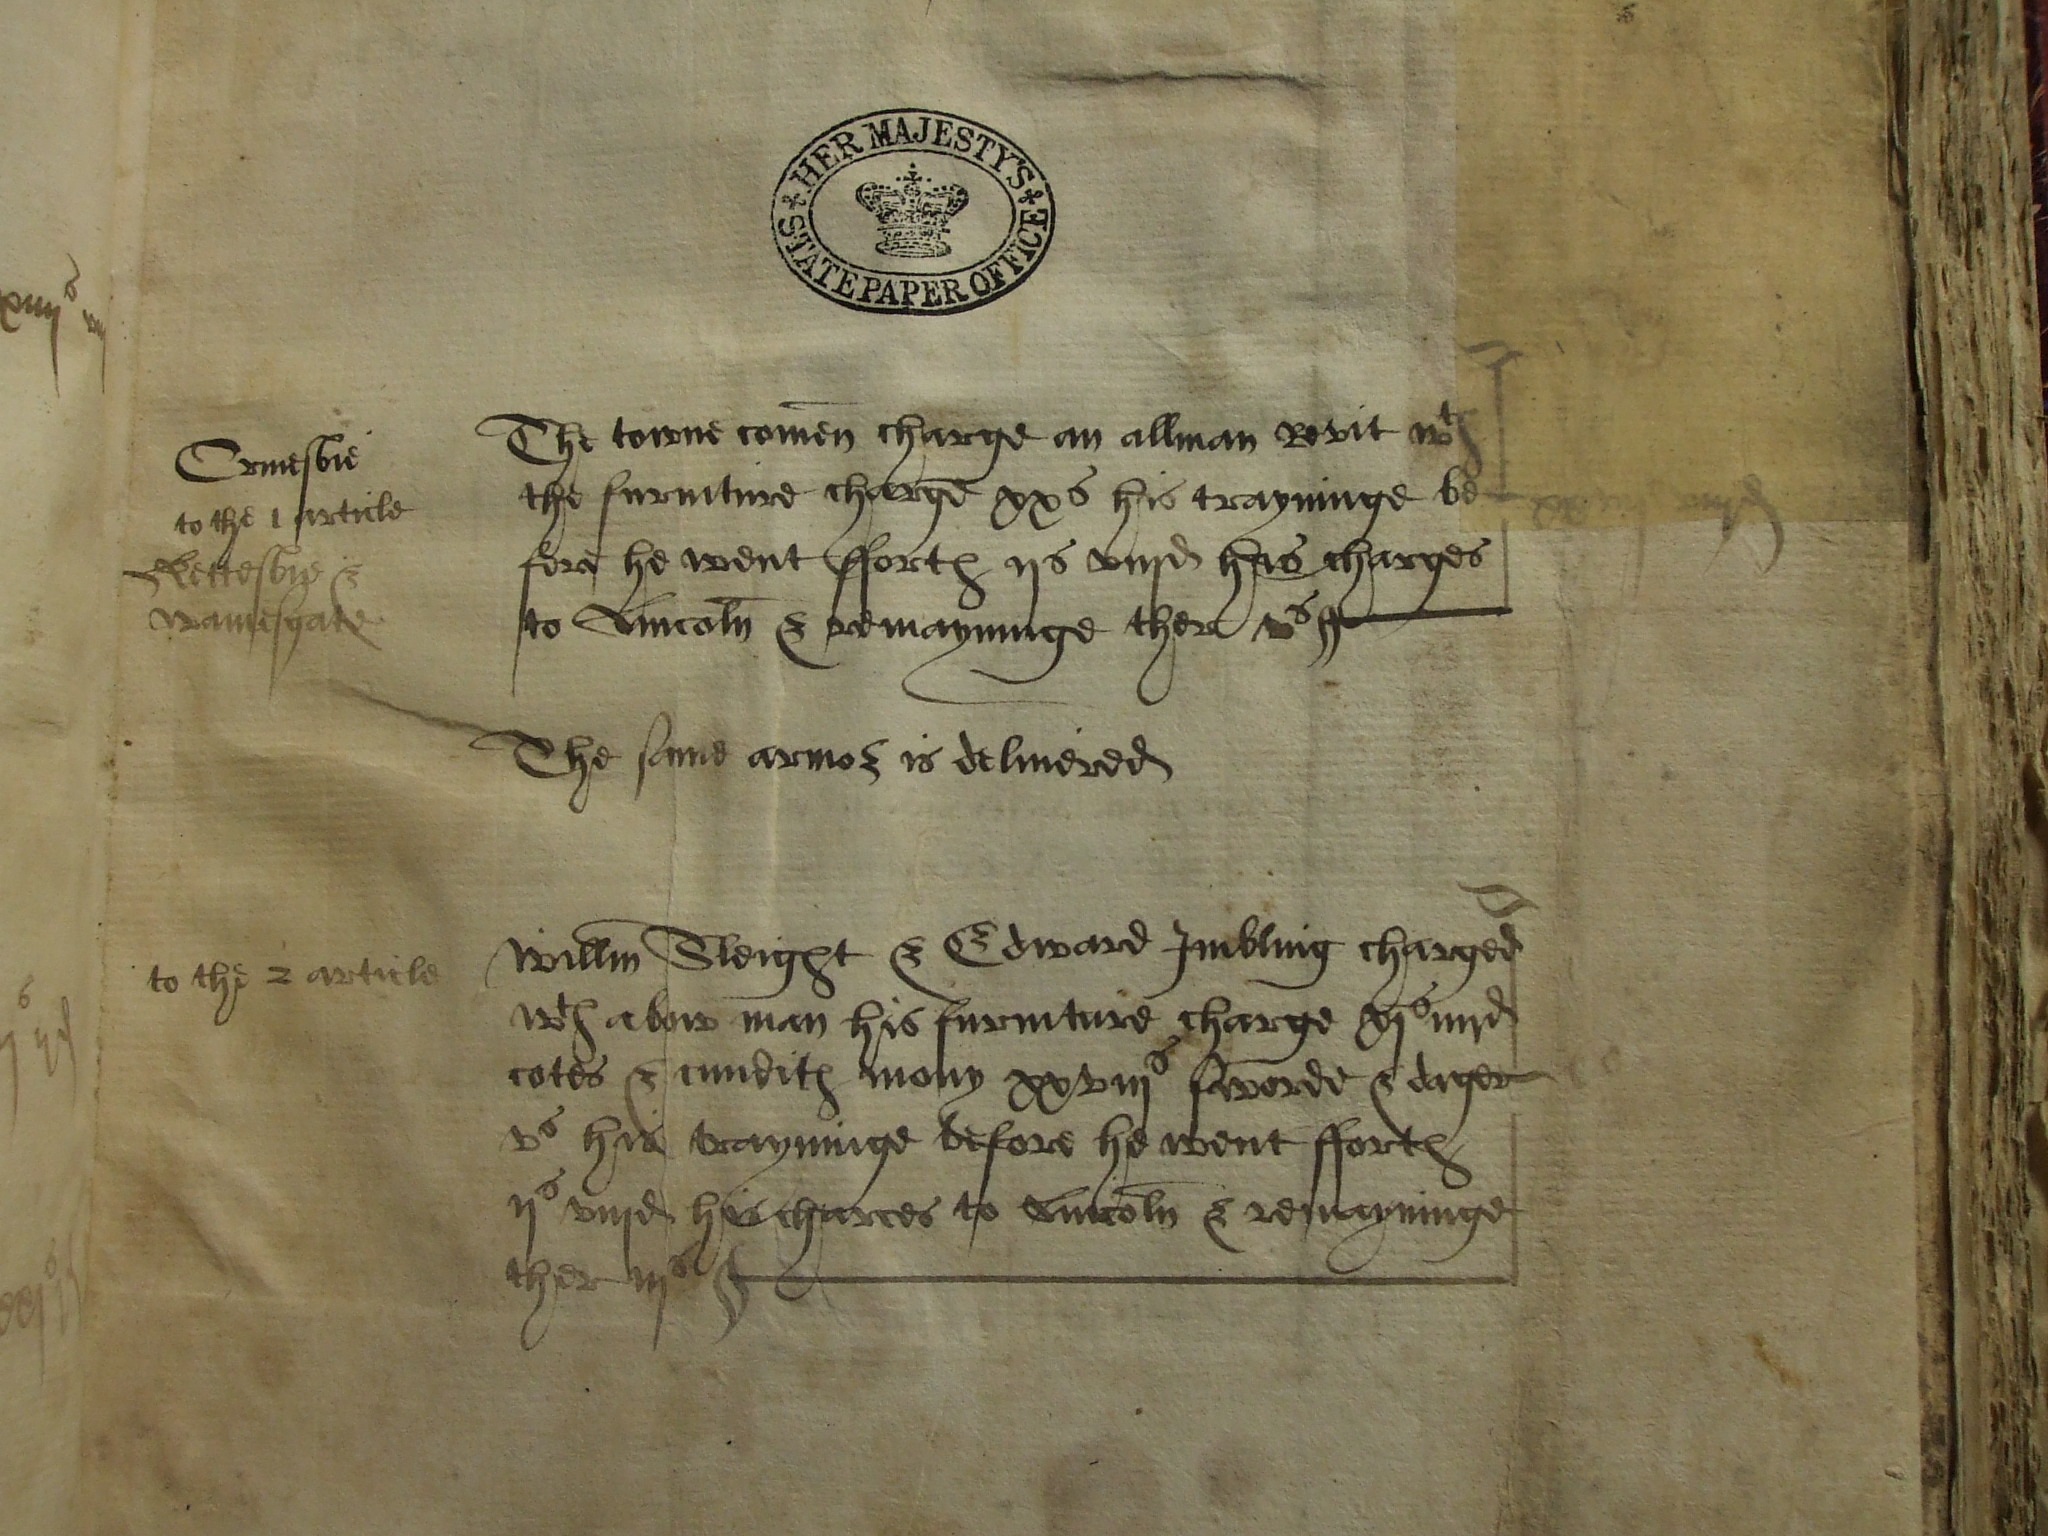 HER MAJESTY'S
STATE PAPER OFFICE
Ormesbie
to the 1 article
Kettesbie &
Walmesgate
The towne comen charge an allman revit wth
the furniture charge xxs his trayninge be
fore he went fforth ijs viijd his charges
to Lincoln & remayninge ther vs
The same armor is deliuered
to the 2 article
Willm Sleight & Edward Imbling charged
wth a bow man his furniture charge xjs iiijd
cotes & cundith mony xxviijs sworde & dager
vs his trayninge before he went fforth
ijs viijd his charces to Lincoln & remayninge
ther iijs